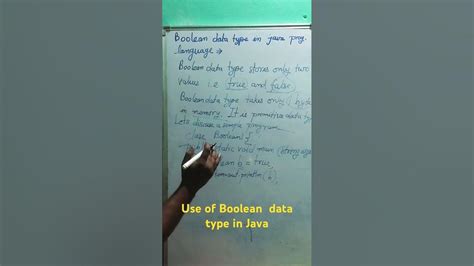 Boolean data type in java prog.
language :-
Boolean data type stores only two
values i.e. true and false.
Boolean data type takes only 1 byte
in memory. It is primitive data type
Lets discuss a simple program
class Boolean {
static void main (String args
b = true;
(b);
Use of Boolean data
type in Java